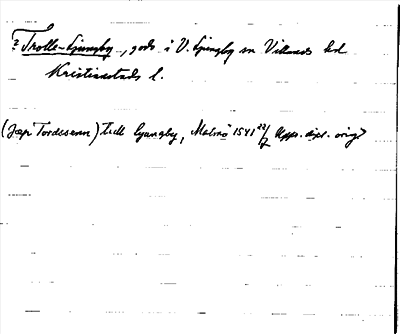 ? Trolle-Ljungby, gods i V. Ljungby sn Villands hd
Kristianstads l.
(Jæp Tordessenn) tiill lyungby, Malmö 1541 22/7 Upps. dipl. orig?